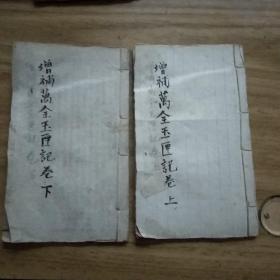 增補萬全玉匣記卷上
增補萬全玉匣記卷下